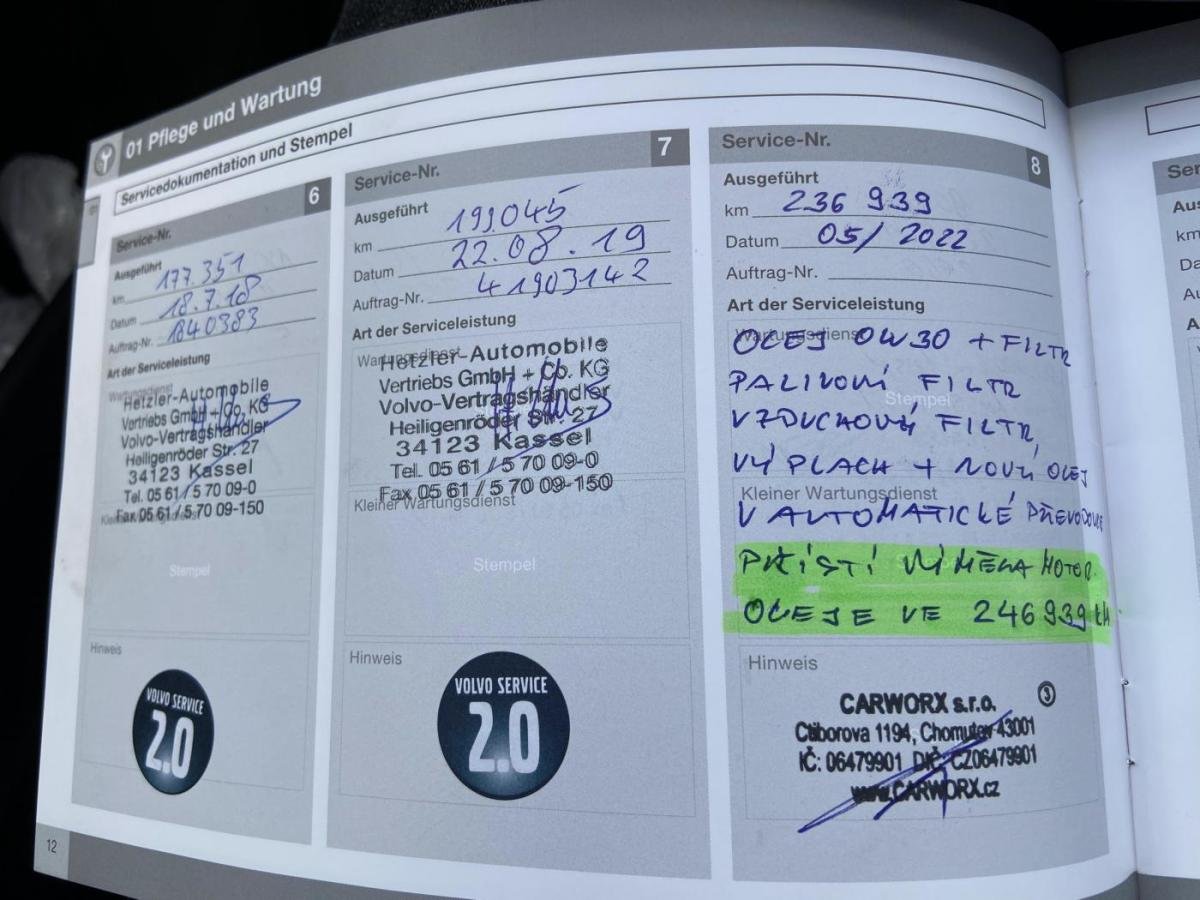 01 Pflege und Wartung
Servicedokumentation und Stempel
Service-Nr. 6
Ausgeführt
km 177.351
Datum 18.7.18
Auftrag-Nr. 1840383
Art der Serviceleistung
Wartungsdienst
Hetzler-Automobile
Vertriebs GmbH + Co. KG
Volvo-Vertragshändler
Heiligenröder Str. 27
34123 Kassel
Tel. 05 61 / 5 70 09-0
Fax 05 61 / 5 70 09-150
Kleiner Wartungsdienst
Stempel
Hinweis
VOLVO SERVICE
2.0
Service-Nr. 7
Ausgeführt
km 199045
Datum 22.08.19
Auftrag-Nr. 41903142
Art der Serviceleistung
Wartungsdienst
Hetzler-Automobile
Vertriebs GmbH + Co. KG
Volvo-Vertragshändler
Heiligenröder Str. 27
34123 Kassel
Tel. 05 61 / 5 70 09-0
Fax 05 61 / 5 70 09-150
Kleiner Wartungsdienst
Stempel
Hinweis
VOLVO SERVICE
2.0
Service-Nr. 8
Ausgeführt
km 236 939
Datum 05/2022
Auftrag-Nr.
Art der Serviceleistung
Wartungsdienst
OLEJ 0W30 + FILTR
PALIVOVÍ FILTR
Stempel
VZDUCHOVÝ FILTR,
VÝPLACH + NOVÝ OLEJ
Kleiner Wartungsdienst
V AUTOMATICKÉ PŘEVODOVCE
PŘÍSTÍ VÍMĚNA MOTOR.
OLEJE VE 246939 KM
Hinweis
CARWORX s.r.o. 3
Ctiborova 1194, Chomutov 43001
IČ: 06479901 DIČ: CZ06479901
www.CARWORX.cz
12